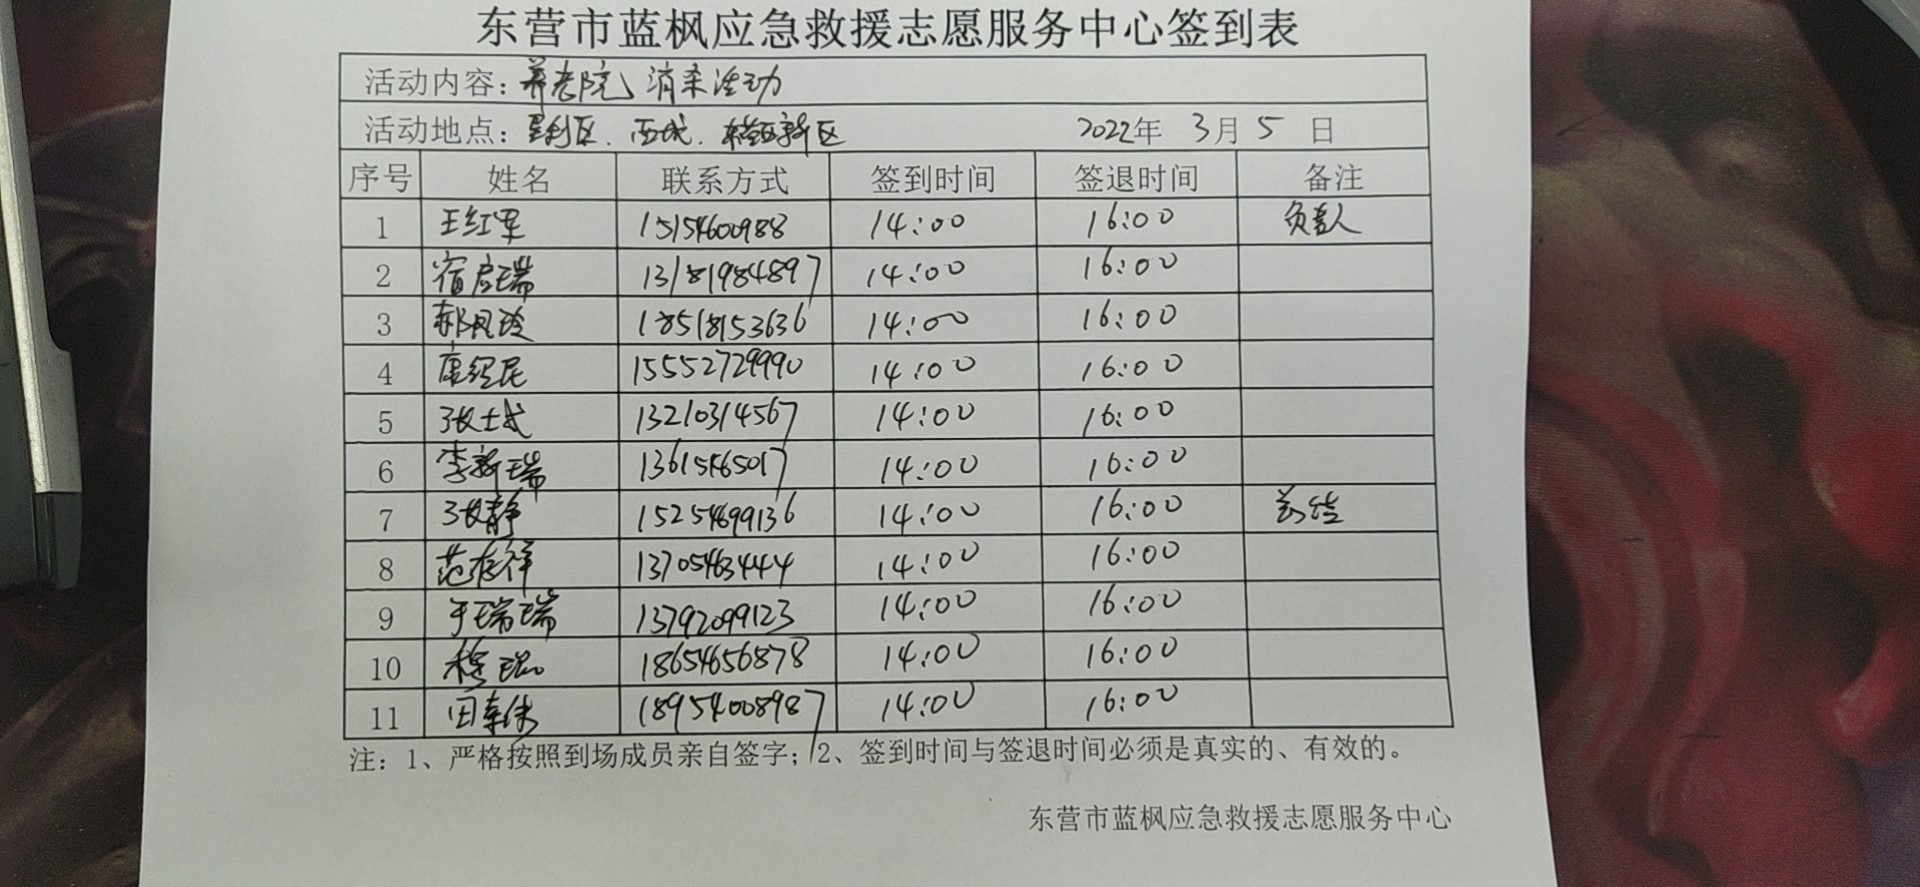 东营市蓝枫应急救援志愿服务中心签到表
活动内容：养老院消杀活动
活动地点：垦利区、西城、 2022年 3月 5 日
序号 姓名 联系方式 签到时间 签退时间 备注
1 王红军 15154600988 14:00 16:00 负责人
2 宿启瑞 13181984897 14:00 16:00
3 郝凤玲 18518153636 14:00 16:00
4 15552729990 14:00 16:00
5 张士武 13210314567 14:00 16:00
6 李新瑞 13615465017 14:00 16:00
7 张静 15254699136 14:00 16:00 总结
8 范存祥 13705463444 14:00 16:00
9 于瑞瑞 13792099123 14:00 16:00
10 程琨 18654656878 14:00 16:00
11 18954008987 14:00 16:00
注：1、严格按照到场成员亲自签字；2、签到时间与签退时间必须是真实的、有效的。
东营市蓝枫应急救援志愿服务中心